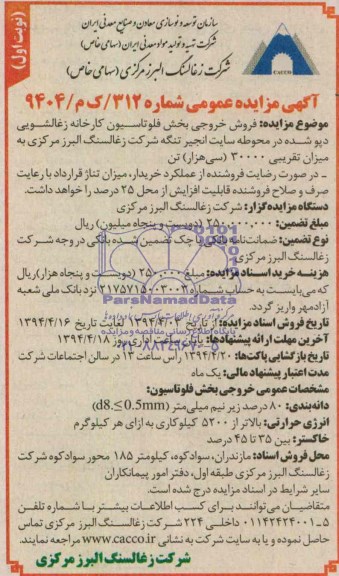 (نوبت اول)
سازمان توسعه و نوسازی معادن و صنایع معدنی ایران
شرکت تهیه و تولید مواد معدنی ایران (سهامی خاص)
شرکت زغالسنگ البرز مرکزی (سهامی خاص)
CACCO
آگهی مزایده عمومی شماره ۳۱۲/ک م/۹۴۰۴
موضوع مزایده: فروش خروجی بخش فلوتاسیون کارخانه زغالشویی
دپو شده در محوطه سایت انجیر تنگه شرکت زغالسنگ البرز مرکزی به
میزان تقریبی ۳۰۰۰۰ (سی‌هزار) تن
ـ در صورت رضایت فروشنده از عملکرد خریدار، میزان تناژ قرارداد با رعایت
صرف و صلاح فروشنده قابلیت افزایش از محل ۲۵ درصد را خواهد داشت.
دستگاه مزایده‌گزار: شرکت زغالسنگ البرز مرکزی
مبلغ تضمین: ۲۵۰،۰۰۰،۰۰۰ (دویست و پنجاه میلیون) ریال
نوع تضمین: ضمانت‌نامه بانکی یا چک تضمین شده بانکی در وجه شرکت
زغالسنگ البرز مرکزی
هزینه خرید اسناد مزایده: مبلغ ۲۵۰،۰۰۰ (دویست و پنجاه هزار) ریال
که می‌بایست به حساب شماره ۲۱۷۵۷۱۵۰۰۳۰۰۲ نزد بانک ملی شعبه
آزادمهر واریز گردد.
ParsNamadData
تاریخ فروش اسناد مزایده: از تاریخ ۱۳۹۴/۰۴/۰۳ لغایت تاریخ ۱۳۹۴/۴/۱۶
پایگاه اطلاع رسانی مناقصه و مزایده
آخرین مهلت ارائه پیشنهادها: پایان ساعت اداری روز ۱۳۹۴/۴/۱۸
۰۲۱-۸۸۳۴۹۶۷۰-۵
تاریخ بازگشایی پاکت‌ها: ۱۳۹۴/۰۴/۲۰ راس ساعت ۱۳ در سالن اجتماعات شرکت
مدت اعتبار پیشنهاد مالی: یک ماه
مشخصات عمومی خروجی بخش فلوتاسیون:
دانه‌بندی: ۸۰ درصد زیر نیم میلی‌متر (d8.≤0.5mm)
انرژی حرارتی: بالاتر از ۵۲۰۰ کیلوکالری به ازای هر کیلوگرم
خاکستر: بین ۳۵ تا ۴۵ درصد
محل فروش اسناد: مازندران، سوادکوه، کیلومتر ۱۸۵ محور سوادکوه شرکت
زغالسنگ البرز مرکزی طبقه اول، دفتر امور پیمانکاران
سایر شرایط در اسناد مزایده درج شده است.
متقاضیان می‌توانند برای کسب اطلاعات بیشتر با شماره تلفن
۵ـ۰۱۱۴۲۴۲۴۰۰۱ داخلی ۲۲۴ شرکت زغالسنگ البرز مرکزی تماس
حاصل نموده و یا به سایت شرکت به نشانی www.cacco.ir مراجعه نمایند.
شرکت زغالسنگ البرز مرکزی